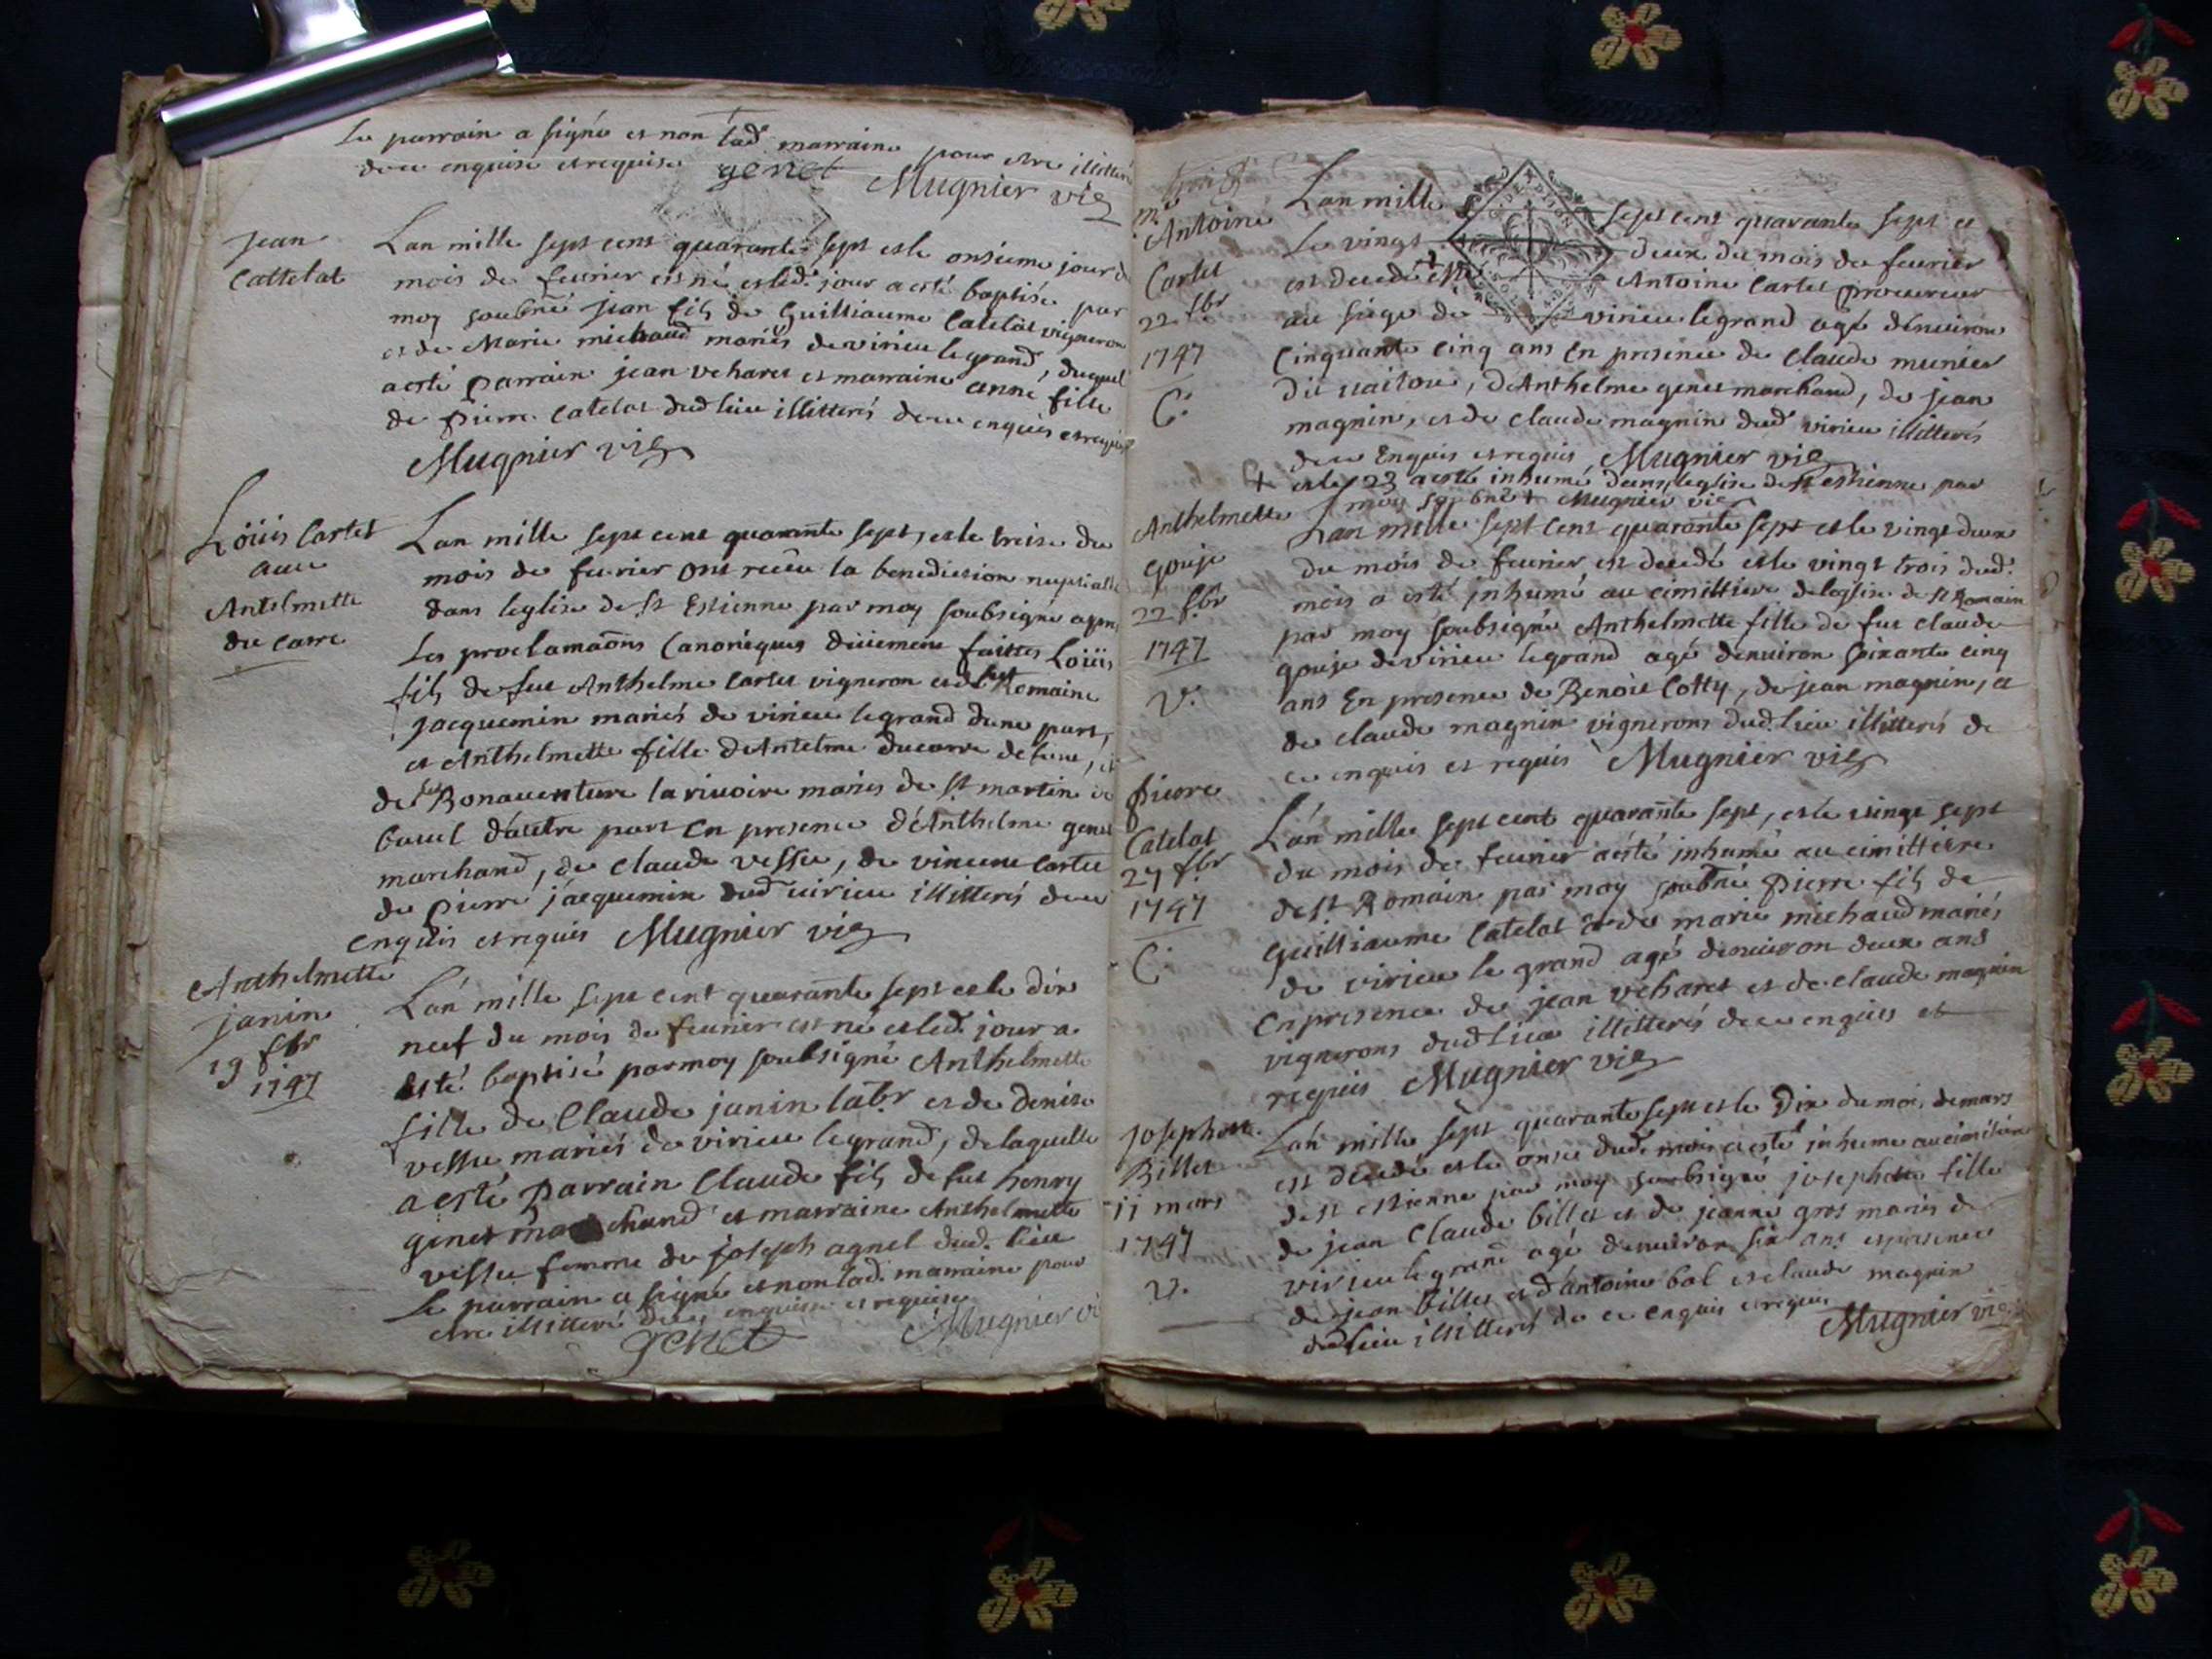 Le parrain a signé et non lad. marraine pour etre illitteré
de ce enquise et requise genet Mugnier vic
Jean
Cattelat
Lan mille sept cent quarante sept et le onsieme jour d
mois de feuvrier est né et led. jour a esté baptisé par
moy soubné jean fils de Guilliaume Catelat vigneron
et de Marie michaud mariés de virieu le grand, duquel
a esté parrain jean veharet et marraine anne fille
de pierre Catelat dud lieu illitterés de ce enquis et requis
Mugnier vic
Loüis Cartet
auec
Antelmette
du carre
Lan mille sept cent quarante sept, et le treise du
mois de feuvrier ont reçu la benediction nuptialle
dans leglise de St Estienne par moy soubsigné apres
Les proclamaõns Canoniques düement faittes Loüis
fils de feu Anthelme Cartet vigneron et de feue Romaine
jacquemin mariés de virieu le grand dune part,
et Anthelmette fille dAntelme ducarre de lieu, et
de feue Bonauenture la riuoire mariés de St martin de
bauel dautre part En presence dAnthelme genet
marchand, de Claude vessu, de vincent Cartet
de Pierre jacquemin dud virieu illitterés de ce
enquis et requis Mugnier vic
Anthelmette
janin
19 fbr
1747
Lan mille sept cent quarante sept et le dix
neuf du mois de feuvrier est né et led. jour a
esté baptisé par moy soubsigné Anthelmette
fille de Claude janin labr et de denise
vessu mariés de virieu le grand, de laquelle
a esté parrain Claude fils de feu henry
genet marchand et marraine Anthelmette
vessu femme de joseph agnel dud. lieu
Le parrain a signé et non lad. marraine pour
etre illitteré de ce enquise et requise
genet Mugnier vi
Me
Antoine
Cartet
22 fbr
1747
C.
Lan mille sept cent quarante sept et
Le vingt deux du mois de feuvrier
est decedé + Me Antoine Cartet procureur
au siege de virieu le grand agé denuiron
Cinquante cinq ans En presence de Claude munier
dit uailou, dAnthelme genet marchand, de jean
magnin, et de Claude magnin dud. virieu illitterés
de ce Enquis et requis Mugnier vic
+ et le 23 a esté inhumé dans leglise de St estienne par
moy soubné + Mugnier vic
Anthelmette
gouje
22 fbr
1747
V.
Lan mille sept cent quarante sept et le vingt deux
du mois de feuvrier est decedé et le vingt trois dud.
mois a esté inhumé au cimittiere de leglise de St Romain
par moy soubsigné Anthelmette fille de feu Claude
gouje de virieu le grand agé denuiron soixante cinq
ans En presence de Benoit Cotty, de jean magnin, et
de Claude magnin vignerons dud. lieu illitterés de
ce enquis et requis Mugnier vic
pierre
Catelat
27 fbr
1747
C.
Lan mille sept cent quarante sept, et le vingt sept
du mois de feuvrier a esté inhumé au cimittiere
de St Romain par moy soubné Pierre fils de
Guilliaume Catelat et de marie michaud mariés
de virieu le grand agé denuiron deux ans
En presence de jean veharet et de Claude magnin
vignerons dud lieu illitterés de ce enquis et
requis Mugnier vic
josephete
Billet
11 mars
1747
V.
Lan mille sept quarante sept et le Dix du mois de mars
est decedé et le onse dud. mois a esté inhumé au cimitiere
de St estienne par moy soubsigné josephete fille
de jean Claude billet et de jeanne gros mariés de
virieu le grand agé denuiron six ans en presence
de jean billet et dantoine bal et claude magnin
dud lieu illitterés de ce enquis et requis Mugnier vic